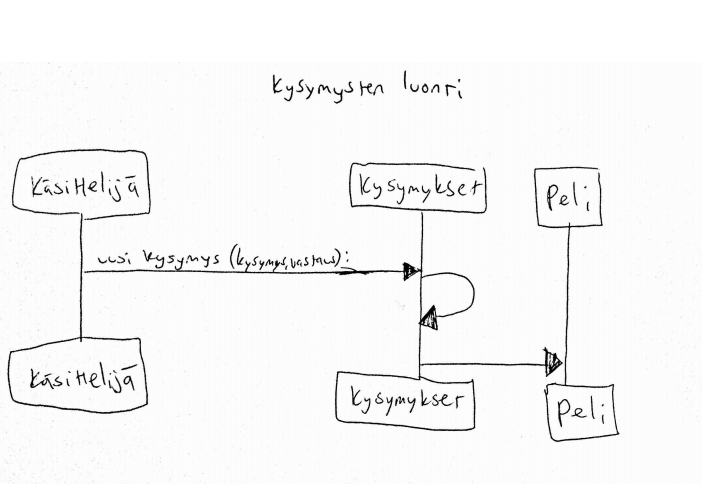 Kysymysten luonti
Käsittelijä
Kysymykset
Peli
uusi kysymys (kysymys,vastaus):
Käsittelijä
Kysymykset
Peli